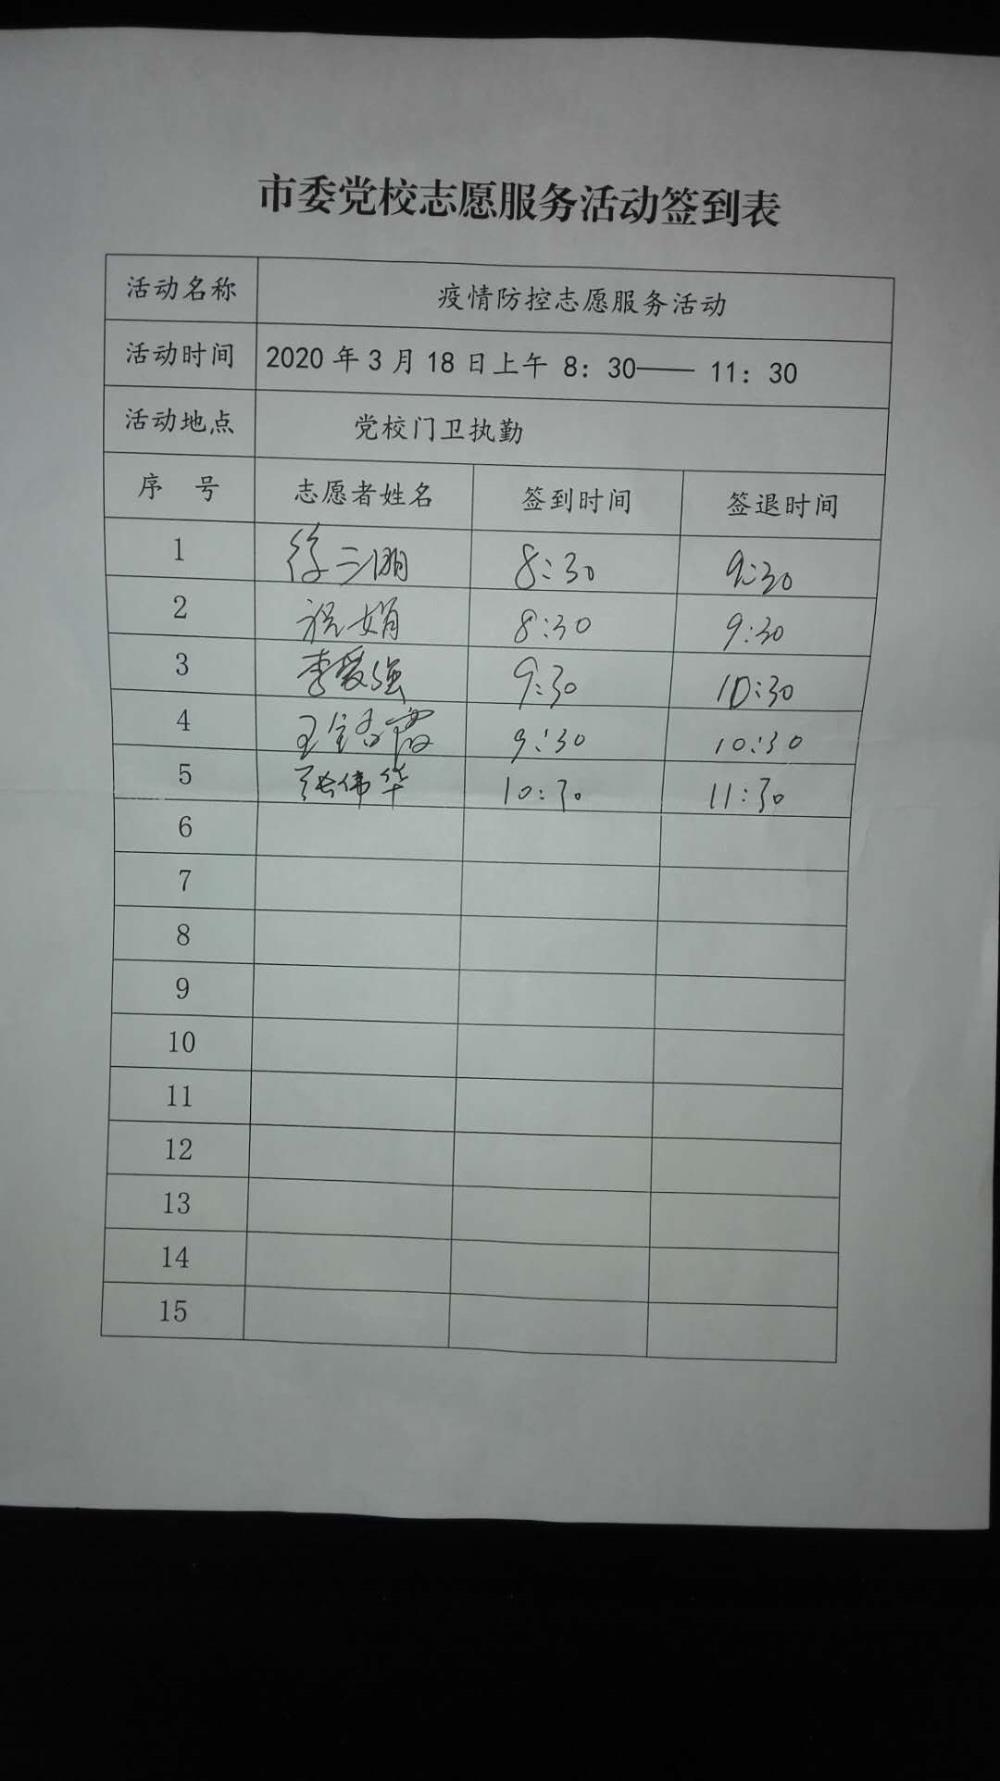 市委党校志愿服务活动签到表
活动名称 疫情防控志愿服务活动
活动时间 2020年3月18日上午 8：30—— 11：30
活动地点 党校门卫执勤
序 号 志愿者姓名 签到时间 签退时间
1 徐三朋 8:30 9:30
2 祝娟 8:30 9:30
3 李爱强 9:30 10:30
4 王 霞 9:30 10:30
5 张伟华 10:30 11:30
6
7
8
9
10
11
12
13
14
15